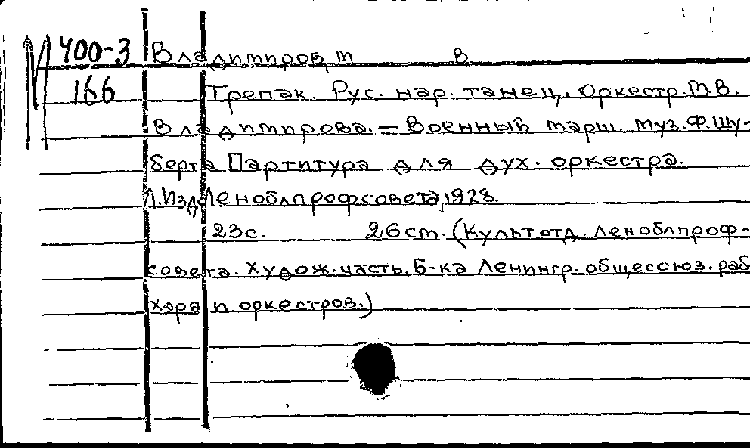 М 400-3 Владимиров, П В
166 Трепак. Рус. нар. танец. Оркестр. П.В.
Владимирова. = Военный марш. муз. Ф. Шу-
берта Партитура для дух. оркестра.
Л. Изд. Леноблпрофсовета, 1928.
23с. 26 cm. (Культотд. Леноблпроф-
совета. Худож. часть. Б-ка Ленингр. общесоюз. раб
хора и оркестров.)